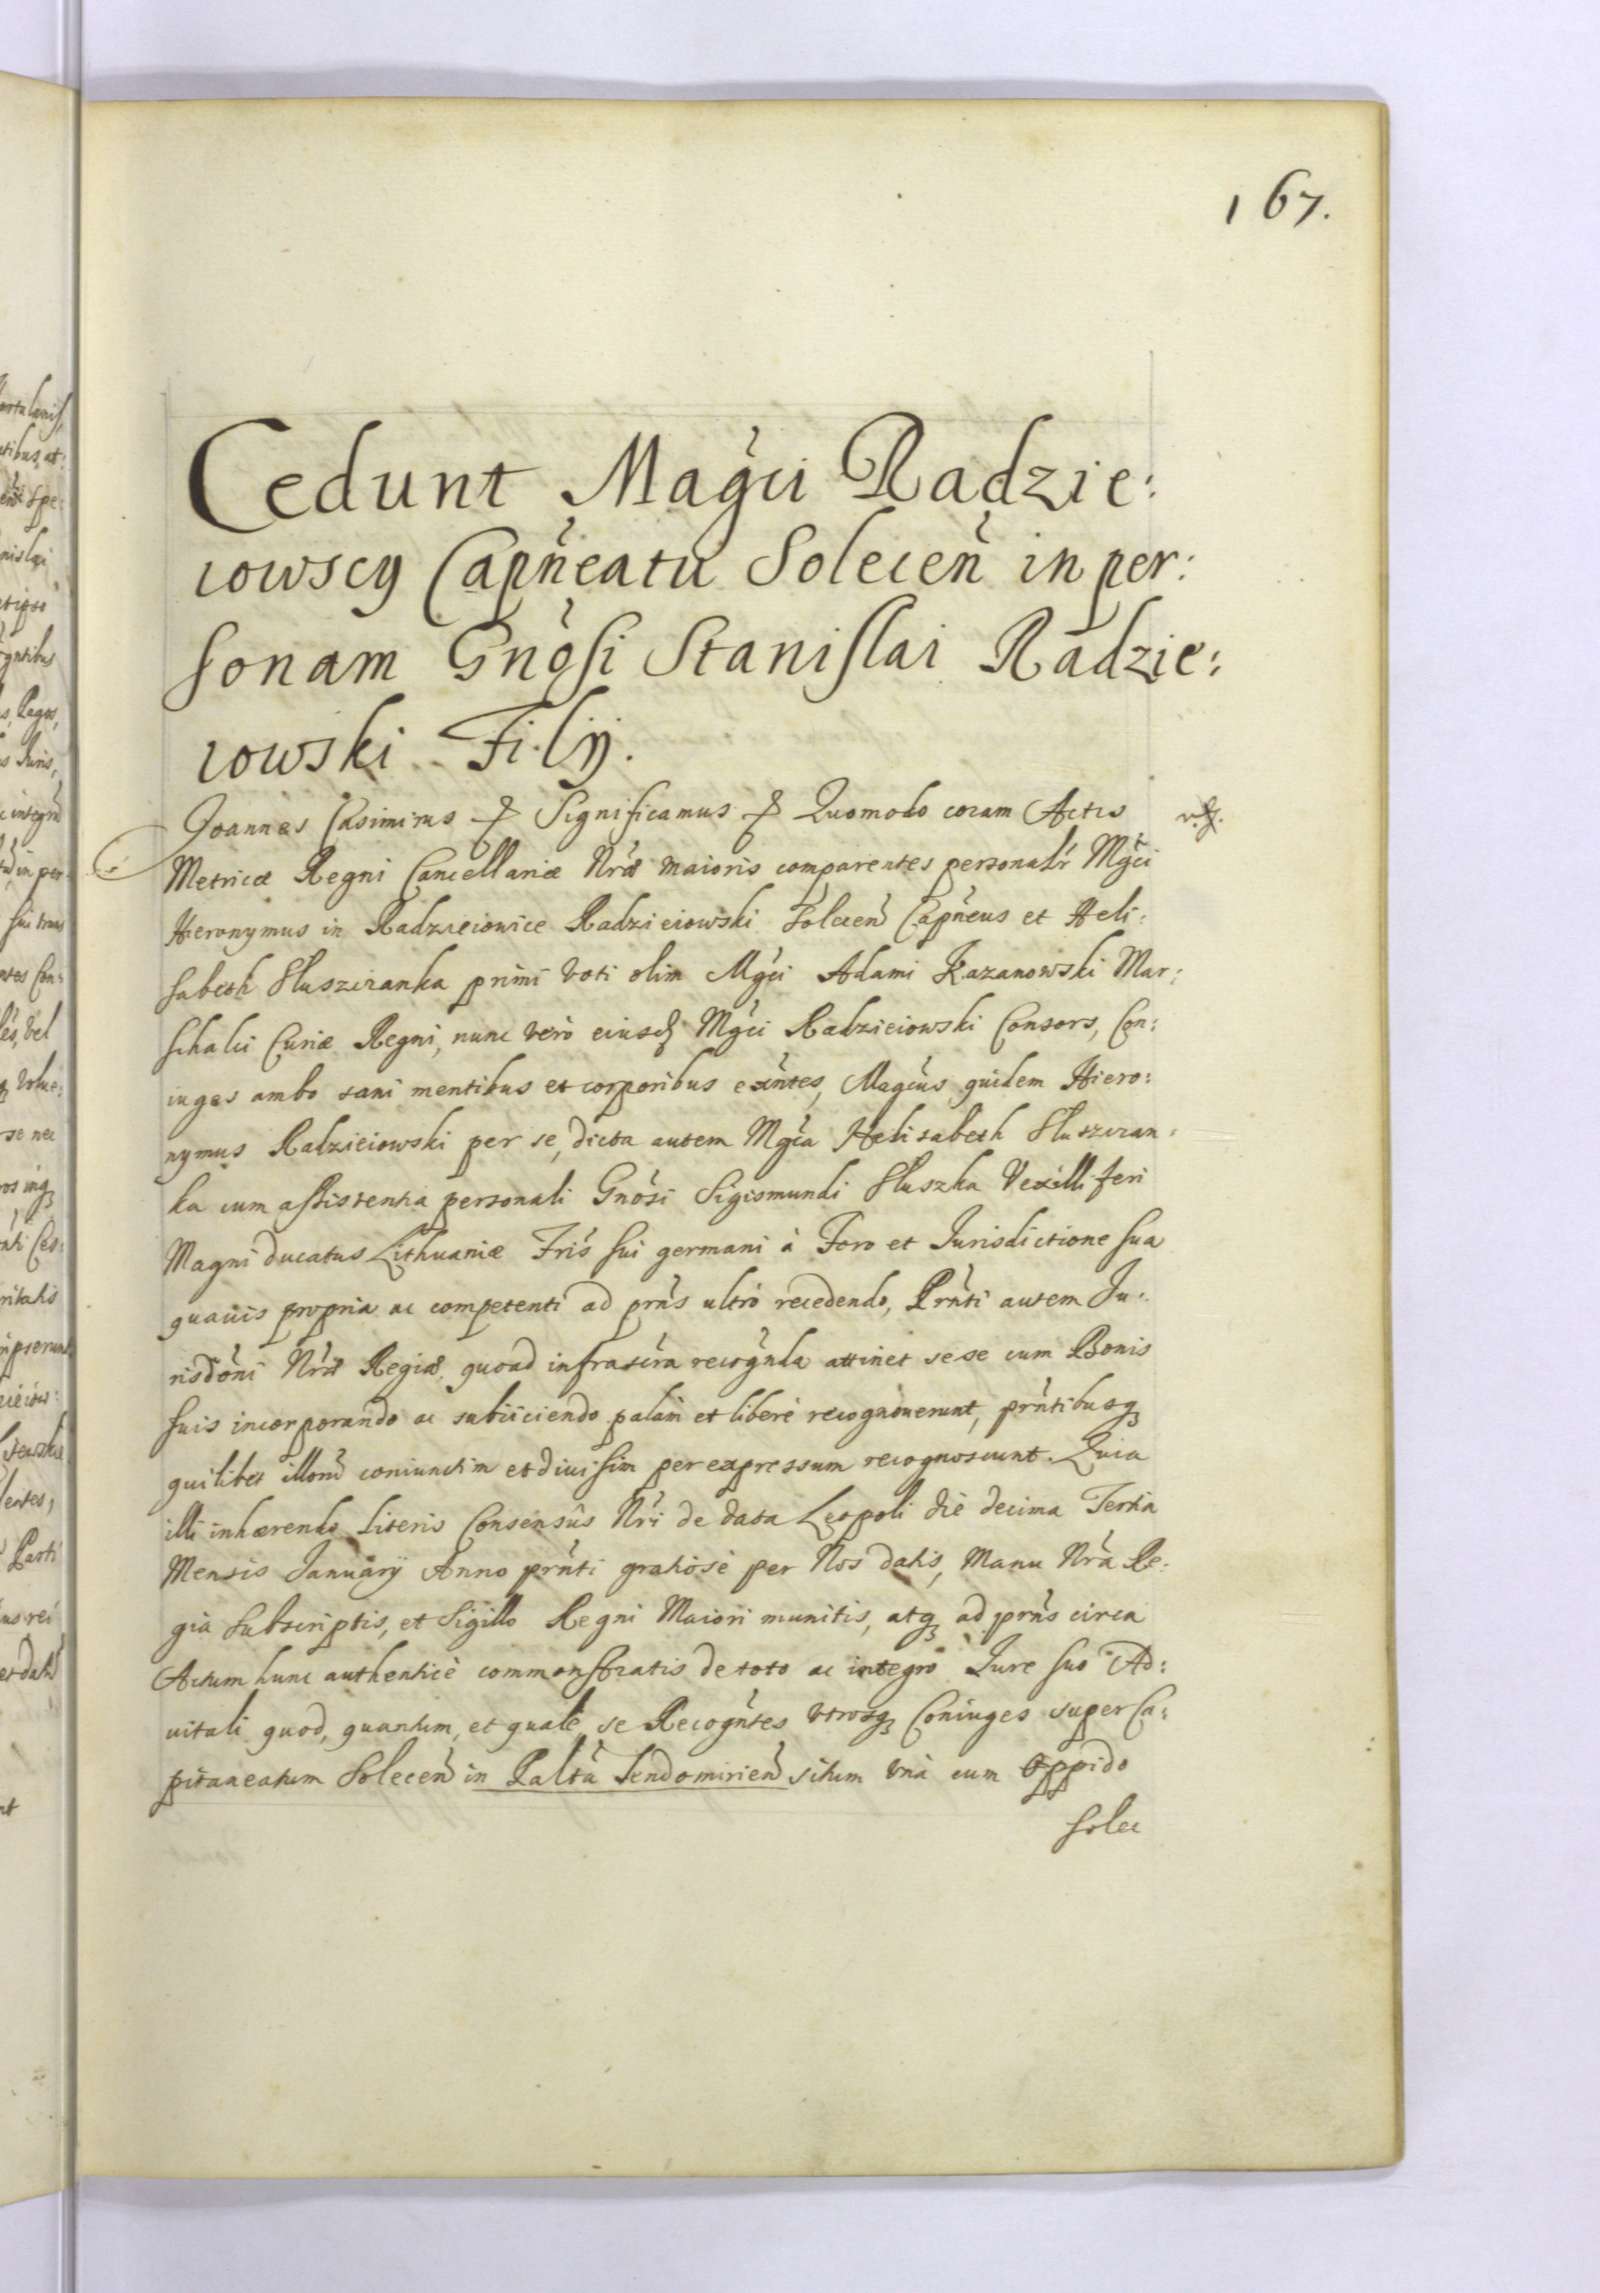 167.
Cedunt Mag̃ci Radzie:
iowscy Capñeatu Solecen̄ in per:
sonam Gnõsi Stanislai Radzie:
iowski Filij.
Joannes Casimirus Significamus Quomodo coram Actis
Metricæ Regni Cancellariæ Nræ̃ maioris comparentes personalr̃ Mgc̃i
Hieronymus in Radzieiowice Radzieiowski Solecen̄ Capñeus et Heli:
sabeth Słuszczanka primi voti olim Mgc̃i Adami Kazanowski Mar:
schalci Curiæ Regni, nunc verò eiusd Mgc̃i Radzieiowski Consors, Con:
iuges ambo sani mentibus et corporibus exñtes, Magc̃us quidem Hiero:
nymus Radzieiowski per se, dicta autem Mgc̃a Helisabeth Słuszczan:
ka cum assistentia personali Gnõsi Sigismundi Słuszka Vexilliferi
Magni ducatus Lithuaniæ Fr̃is sui germani à Foro et Iurisdictione sua
quavis propria ac competenti ad prñs ultrò recedendo, Prñti autem Ju:
risdõni Nræ̃ Regiæ quoad infrascr̃a recogñda attinet sese cum Bonis
suis incorporando ac subiiciendo palàm et liberè recognoverunt, prñtibusq
quilibet illorũ coniunctim et divisim per expressum recognoscunt. Quia
illi inhærendo Literis Consensûs Nr̃i de data Leopoli die decima Tertia
Mensis Januarij Anno prñti gratiosè per Nos datis, Manu Nr̃a Re:
gia subscriptis, et Sigillo Regni Maiori munitis, atq ad prñs circa
Actum hunc authenticè commonstratis de toto ac integro Jure suo Ad:
vitali quod, quantum, et quale se Recogñtes utrosq Coniuges super Ca:
pitaneatum Solecen̄ in Palt̃u Sendomirien̄ situm unà cum Oppido
Solec